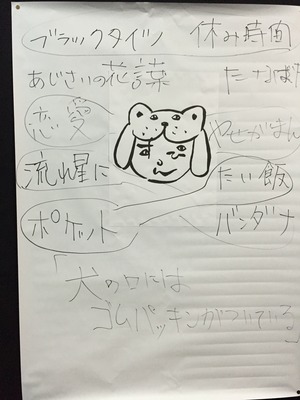 ブラックタイツ
休み時間
あじさいの花言葉
たなばた
恋愛
やせがまん
流れ星に
たい飯
ポケット
バンダナ
「犬の口には
ゴムパッキンがついている」